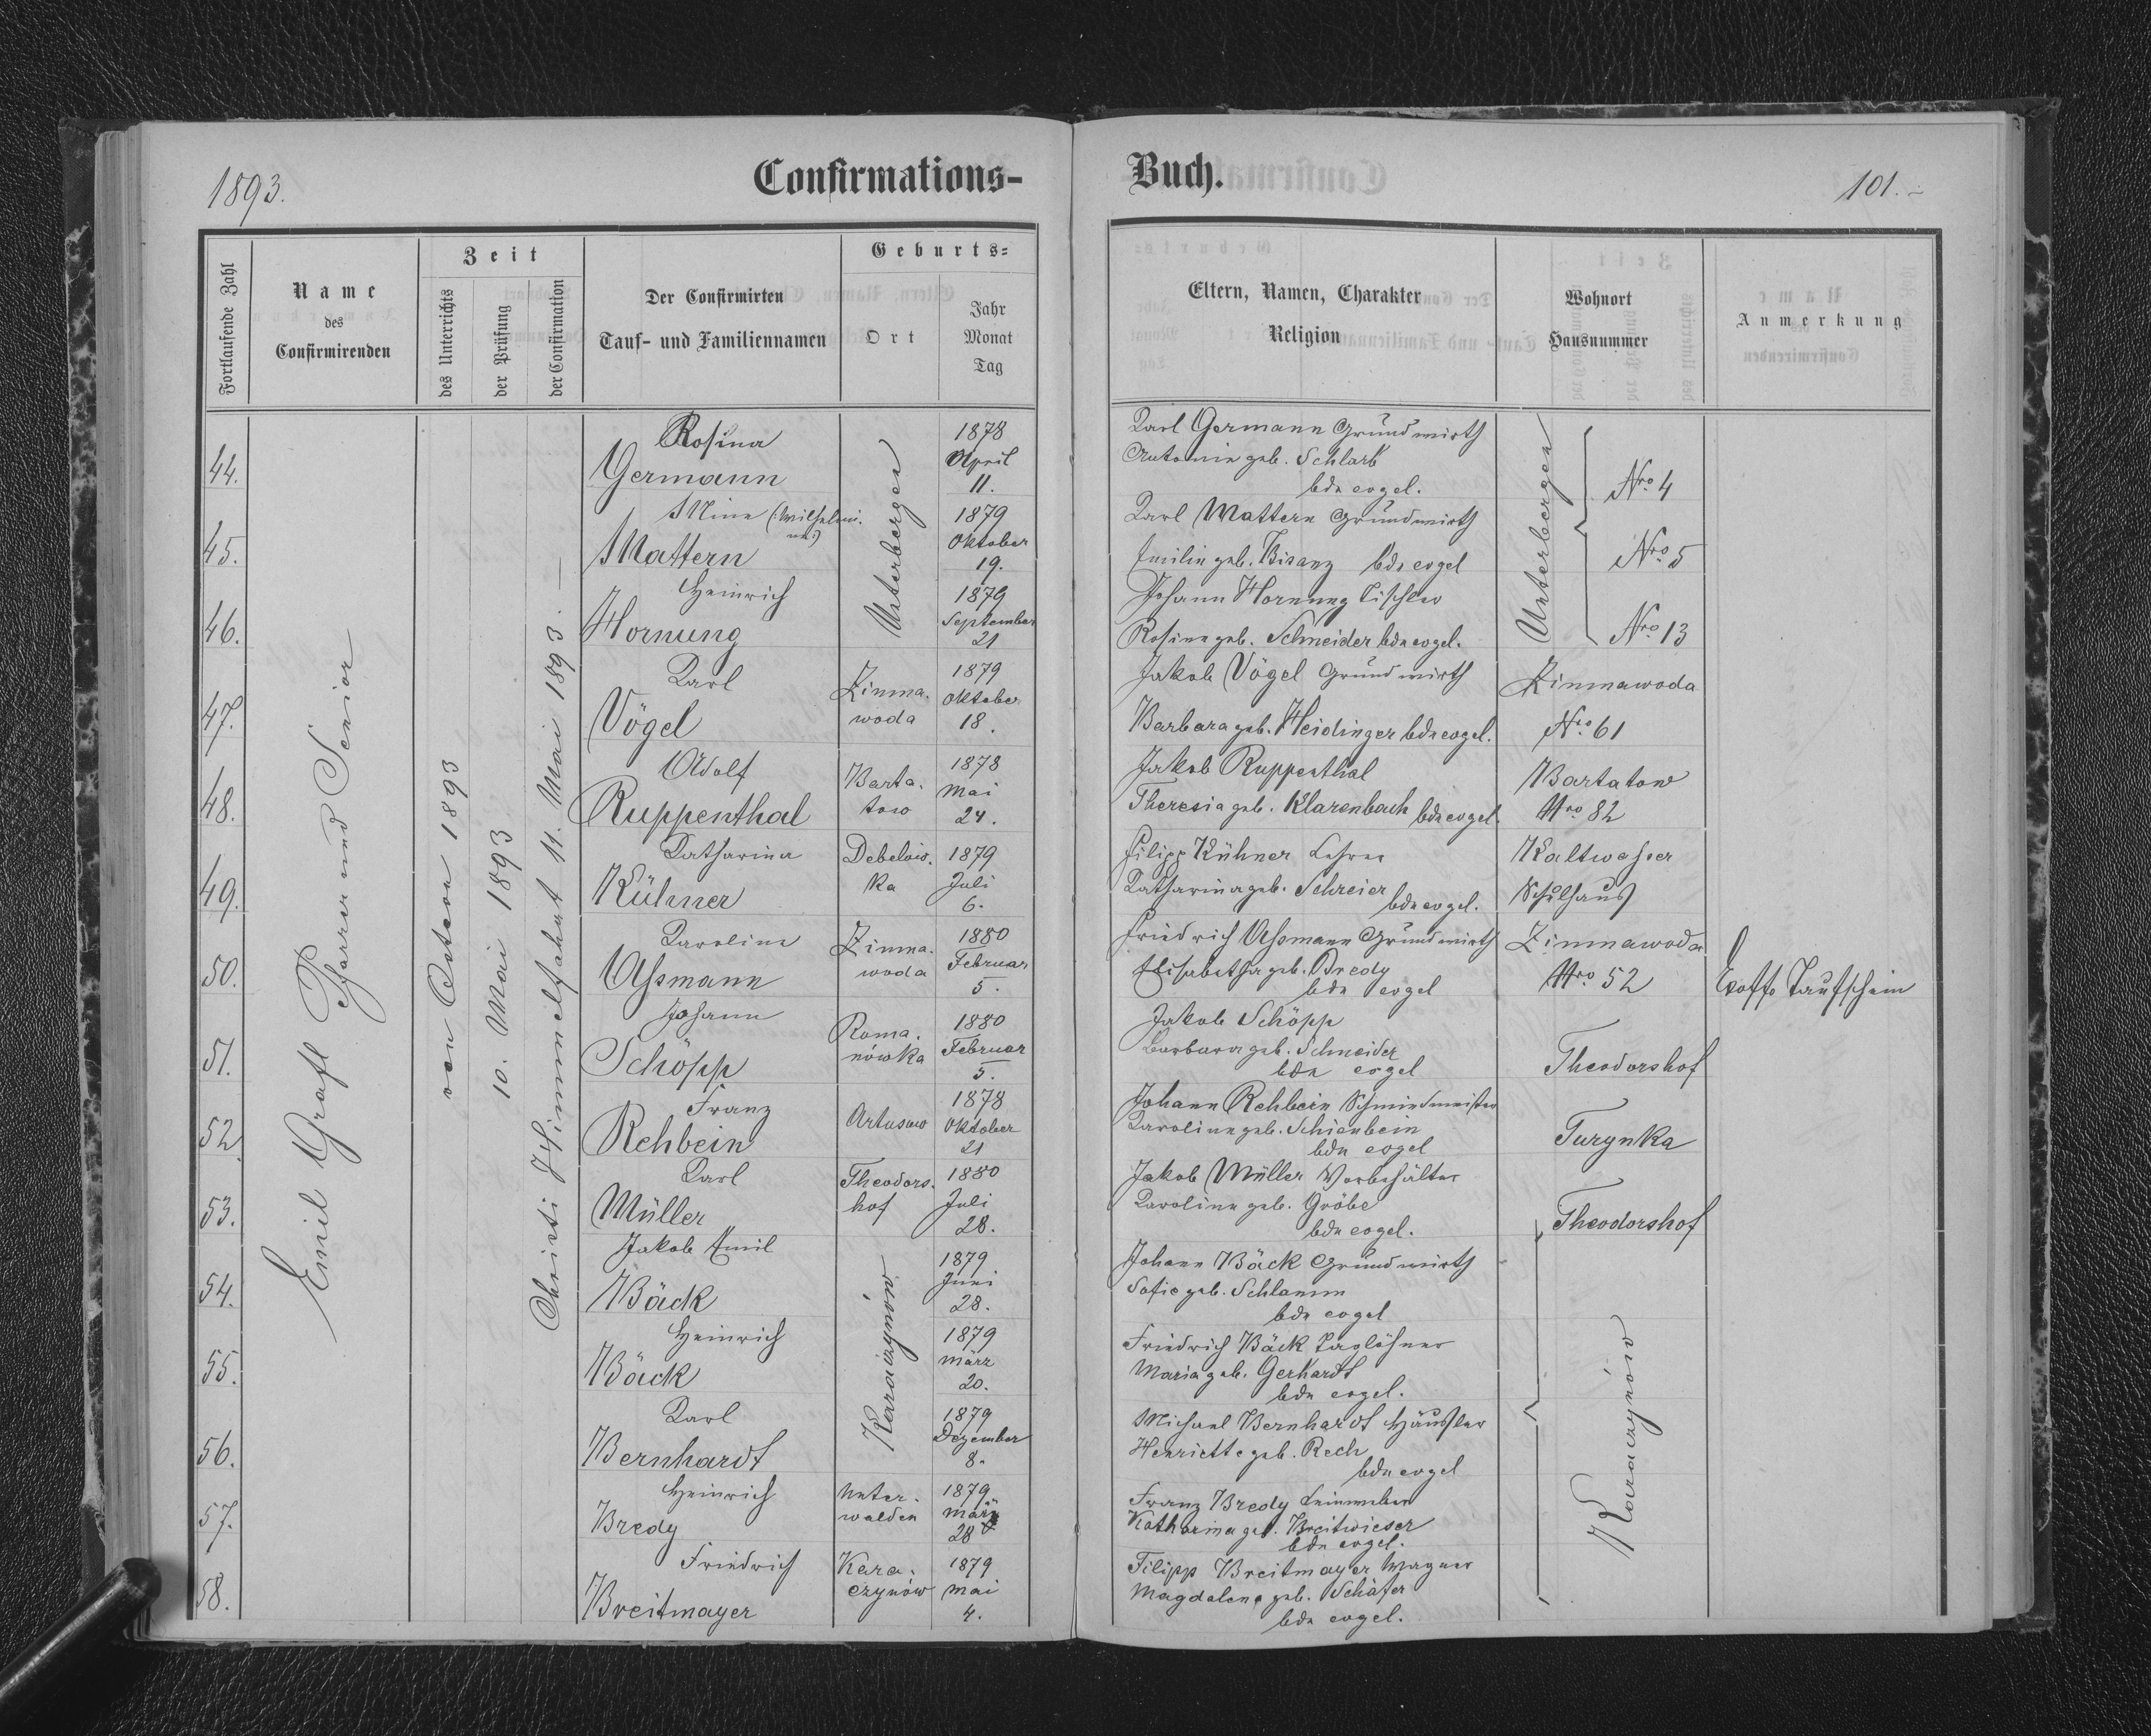 1893.
Confirmations-
Buch.
101.
Fortlaufende Zahl
Name
des
Confirmirenden
Zeit
des Unterrichts
der Prüfung
der Confirmation
Der Confirmirten
Tauf- und Familiennamen
Geburts=
Ort
Jahr
Monat
Tag
Eltern, Namen, Charakter
Religion
Wohnort
Hausnummer
Anmerkung
Emil Grafl Pfarrer und Senior
von Ostern 1893
10. Mai 1893
Christi Himmelfahrt 11. Mai 1893. —
44.
Rosina
Germann
Unterbergen
1878
April
11.
Karl Germann Grundwirth
Antonie geb. Schlarb
bde evgel.
Unterbergen
Nro 4
45.
Mine (:Wilhelmi-
ne:)
Mattern
1879
Oktober
19.
Karl Mattern Grundwirth
Emilie geb. Bisanz bde evgel
Nro 5
46.
Heinrich
Hornung
1879
September
21
Johann Hornung Tischler
Rosina geb. Schneider bde evgel.
Nro 13
47.
Karl
Vögel
Zimna-
woda
1879
Oktober
18.
Jakob Vögel Grundwirth
Barbara geb. Heidinger bde evgel.
Zimnawoda
Nro 61
48.
Adolf
Ruppenthal
Barta-
tow
1878
Mai
24.
Jakob Ruppenthal
Theresia geb. Klarenbach bde evgel.
Bartatow
Nro 82
49.
Katharina
Kühner
Debelow-
ka
1879
Juli
6.
Filipp Kühner Lehrer
Katharina geb. Schreier
bde evgel.
Kaltwasser
Schulhaus
50.
Karoline
Assmann
Zimna-
woda
1880
Februar
5.
Friedrich Assmann Grundwirth
Elisabetha geb. Bredy
bde evgel
Zimnawoda
Nro 52
Exoffo Taufschein
51.
Johann
Schöpp
Roma-
nówka
1880
Februar
5.
Jakob Schöpp
Barbara geb. Schneider
bde evgel
Theodorshof
52.
Franz
Rehbein
Artasow
1878
Oktober
21
Johann Rehbein Schmiedmeister
Karoline geb. Schienbein
bde evgel
Turynka
53.
Karl
Müller
Theodors-
hof
1880
Juli
28.
Jakob Müller Vorbehälter
Karoline geb. Gröbe
bde evgel.
Theodorshof
54.
Jakob Emil
Bäck
Karaczynów
1879
Juni
28.
Johann Bäck Grundwirth
Sofie geb. Schlamm
bde evgel
Karaczynów
55.
Heinrich
Bäck
1879
März
20.
Friedrich Bäck Taglöhner
Maria geb. Gerhardt
bde evgel.
56.
Karl
Bernhardt
1879
Dezember
8.
Michael Bernhardt Häusler
Henriette geb. Rech
bde evgel
57.
Heinrich
Bredy
Unter-
walden
1879.
März
28
Franz Bredy Leinweber
Katharina geb. Breitwieser
bde evgel.
58.
Friedrich
Breitmayer
Kara-
czynów
1879
Mai
4.
Filipp Breitmayer Wagner
Magdalena geb. Schäfer
bde evgel.